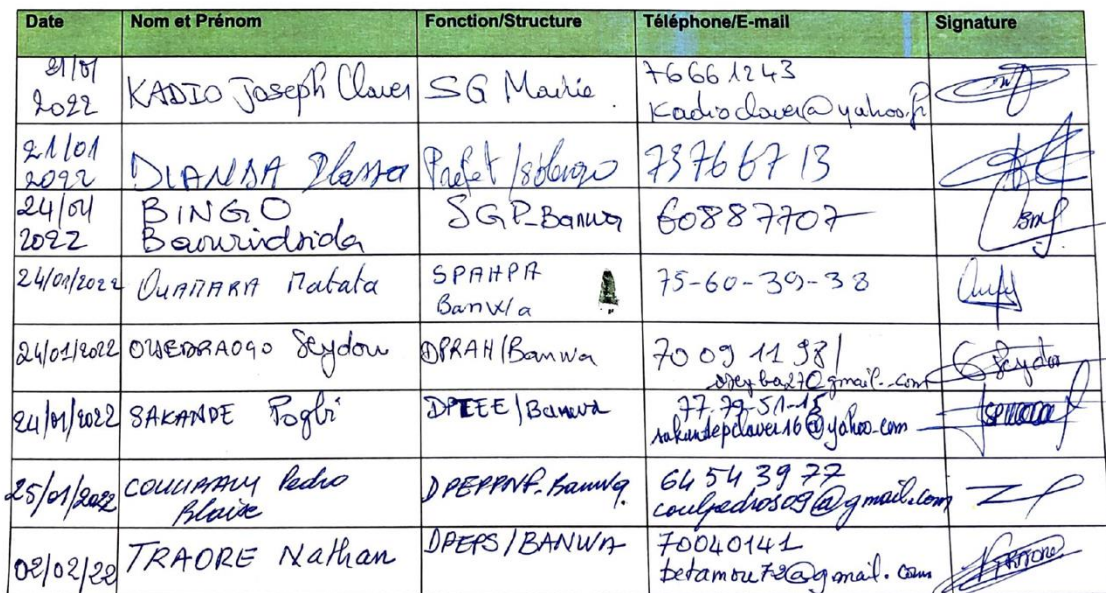 Date Nom et Prénom Fonction/Structure Téléphone/E-mail Signature
21/01 2022 KADIO Joseph Claver SG Mairie 76661243 Kadioclaver@yahoo.fr
21/01 2022 DIANDA 73766713
24/01 2022 BINGO SGP-Banwa 60887707
24/01/2022 OUATTARA Matata SPAHPA Banwa 75-60-39-38
24/01/2022 OUEDRAOGO Seydou DPRAH/Banwa 70 09 11 98/ Seydou
24/01/2022 SAKANDE Pogbi DPEEE/Banwa 77-79-51-15 sakandepclaver16@yahoo.com
25/01/2022 COULIBALY Pedro Blaise DPEPPNF-Banwa 64 54 39 77
02/02/22 TRAORE Nathan DPEPS/BANWA 70040141 betamou72@gmail.com